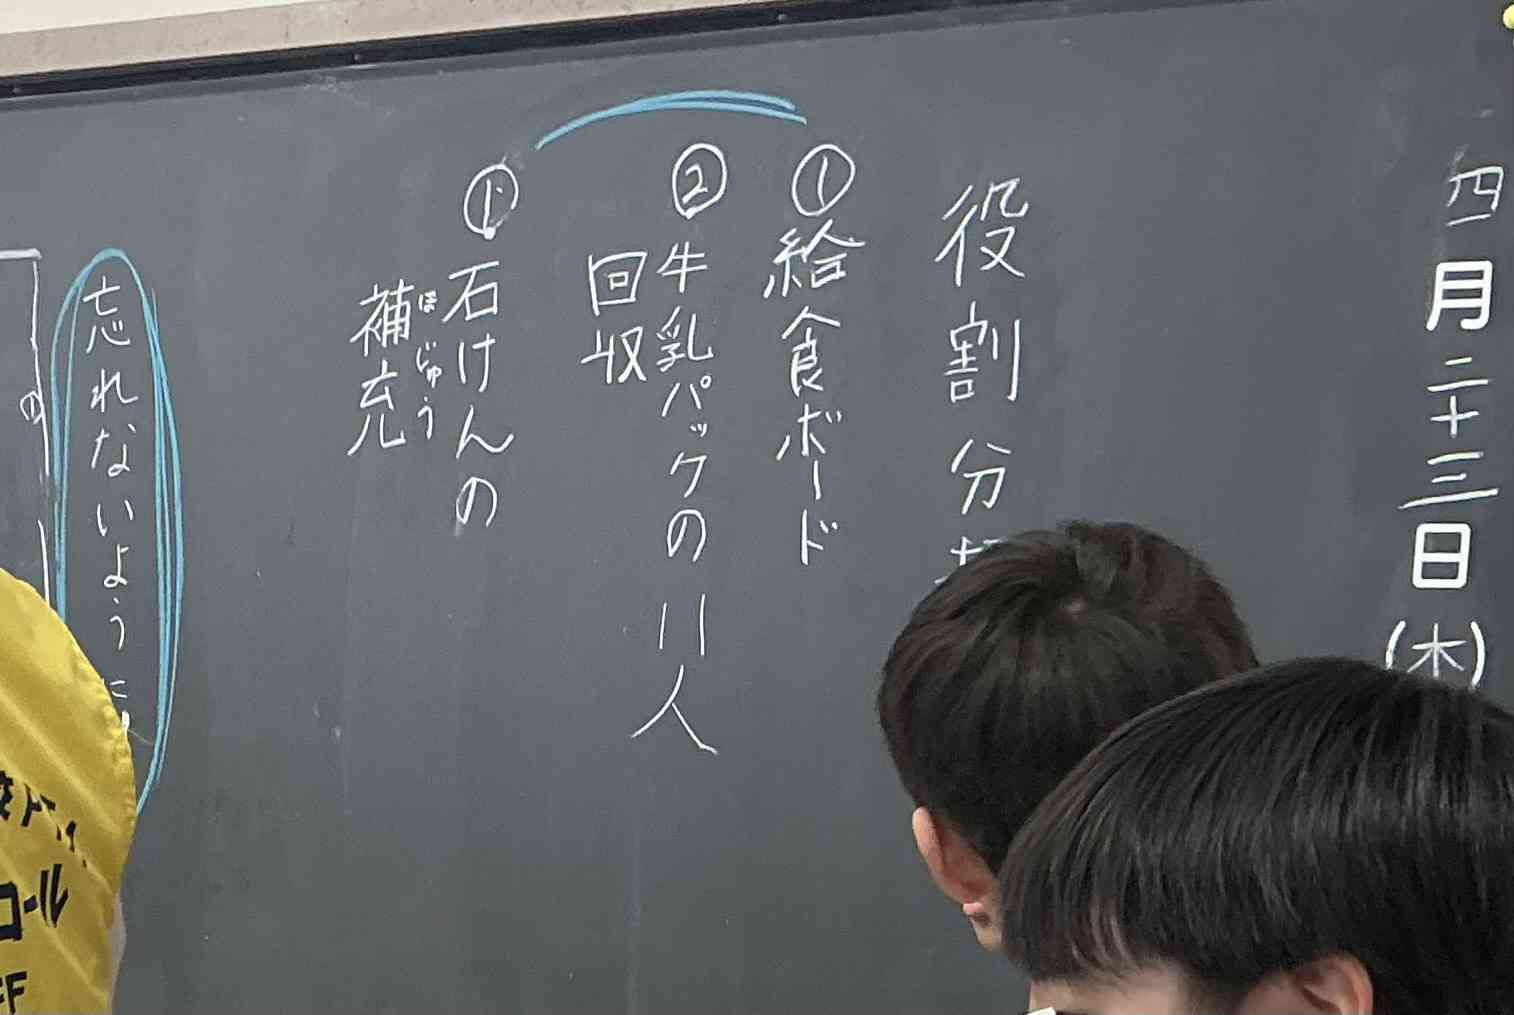 四月二十三日(木)
役割分担
①給食ボード
②牛乳パックの 11人
回収
①石けんの
ほじゅう
補充
忘れないように
①
コール